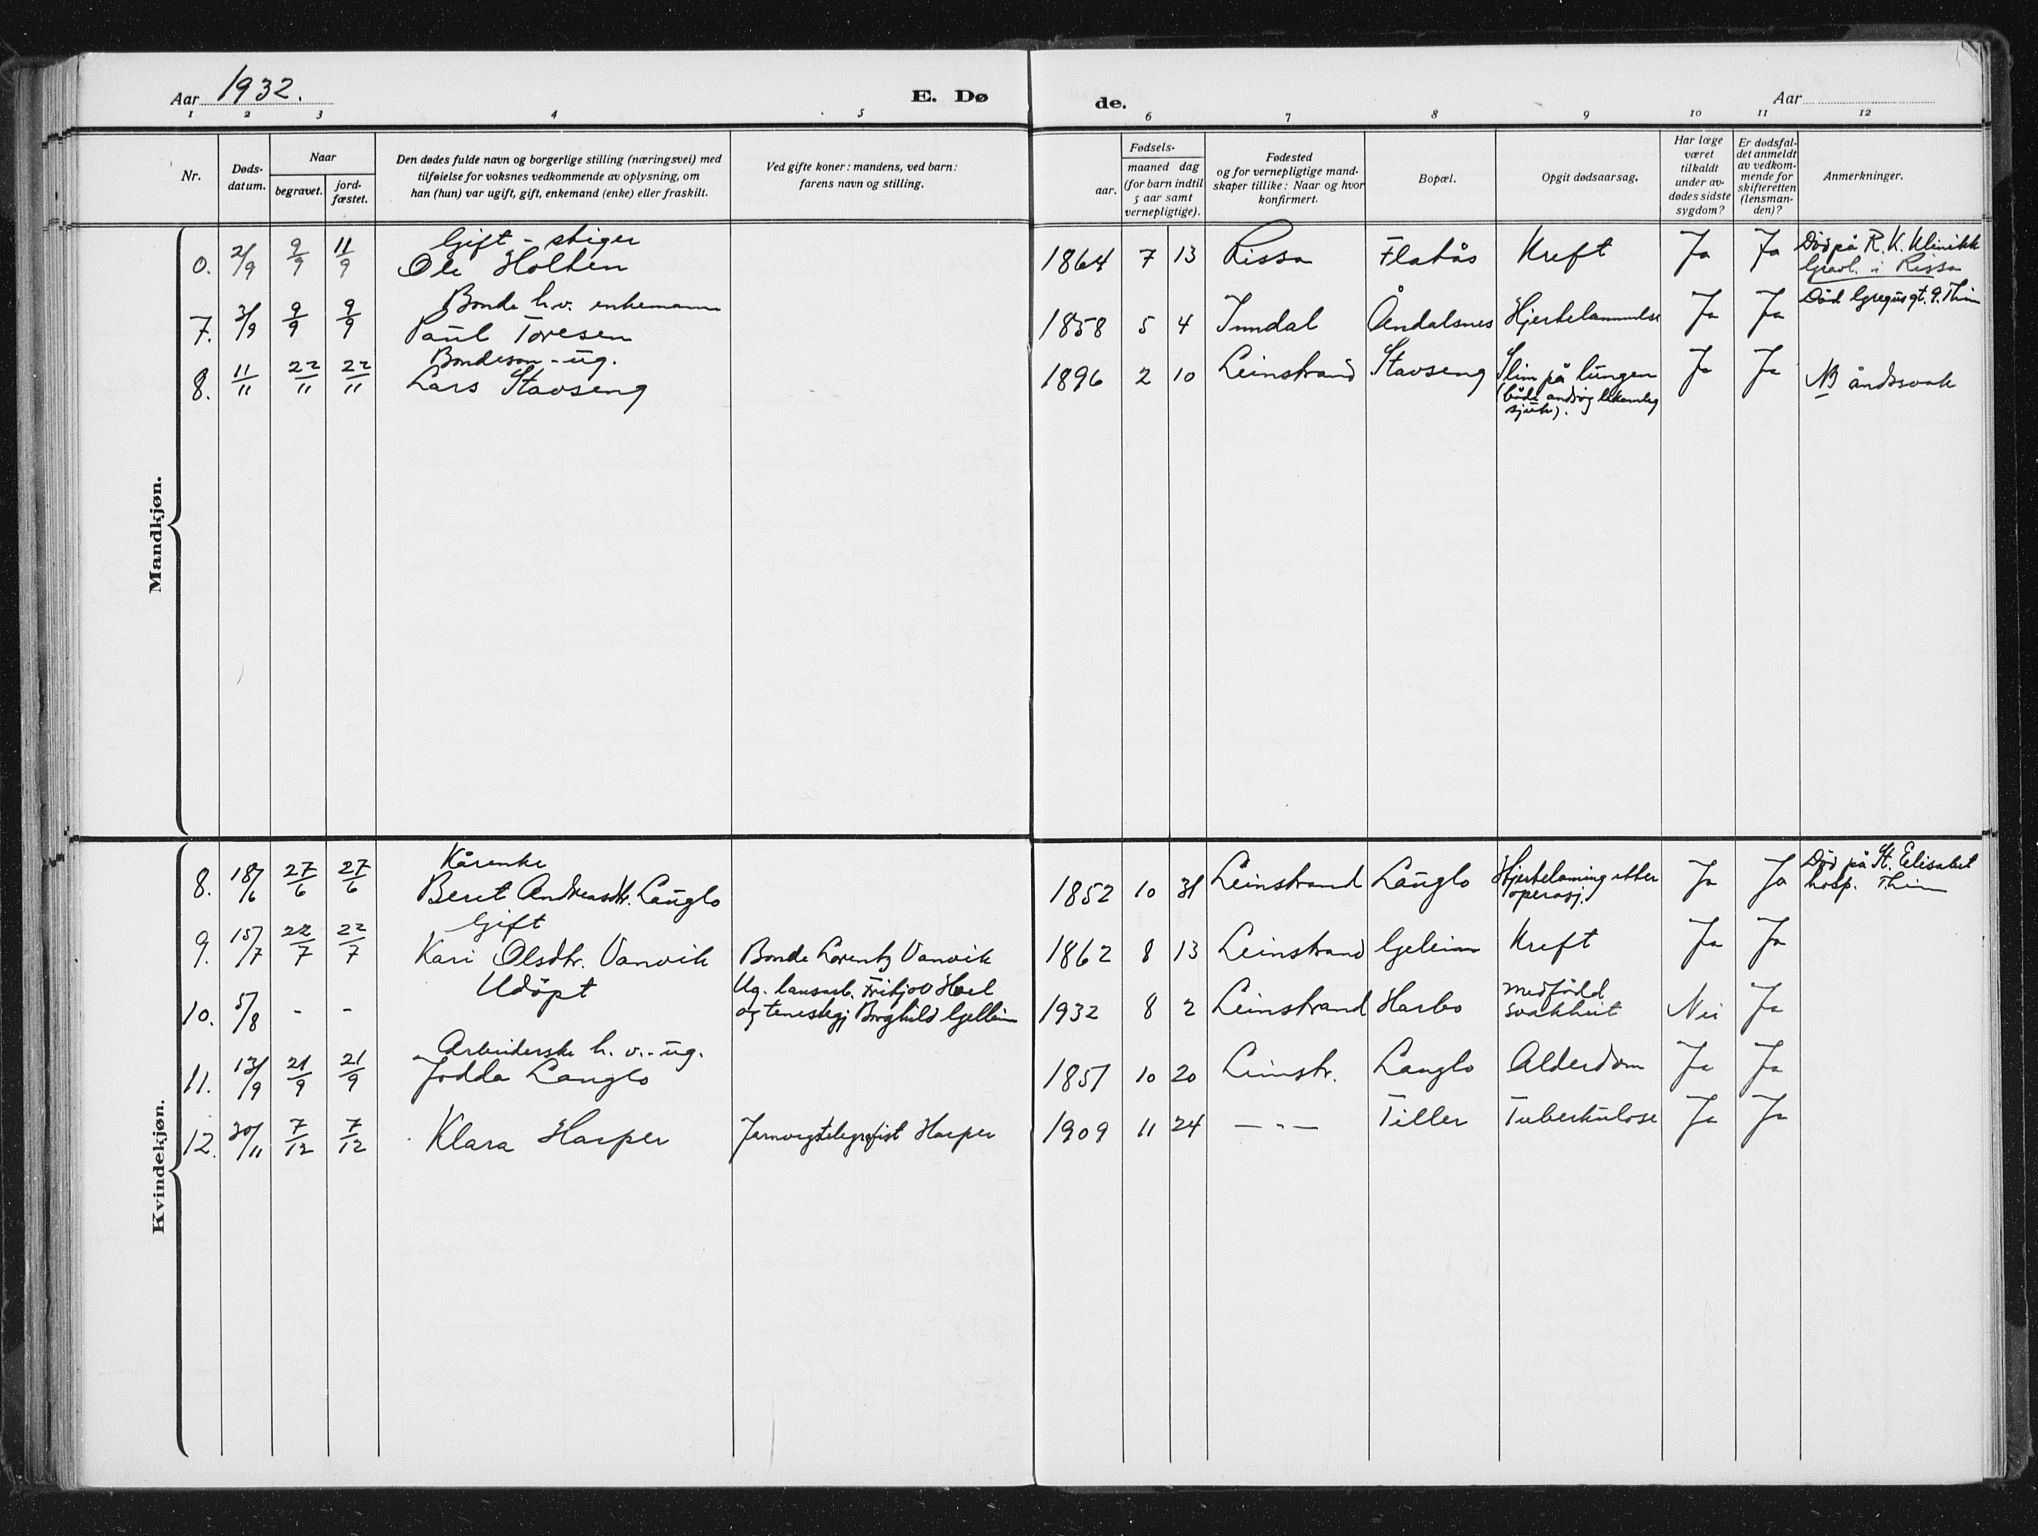 Aar 1932. E. Dø de. Aar
1 2 3 4 5 6 7 8 9 10 11 12
Nr. Døds-datum. Naar begravet. jord-fæstet. Den dødes fulde navn og borgerlige stilling (næringsvei) med tilføielse for voksnes vedkommende av oplysning, om han (hun) var ugift, gift, enkemand (enke) eller fraskilt. Ved gifte koner: mandens, ved barn: farens navn og stilling. Fødsels- aar. maaned dag (for barn indtil 5 aar samt vernepligtige). Fødested og for vernepligtige mand-skaper tillike: Naar og hvor konfirmert. Bopæl. Opgit dødsaarsag. Har læge været tilkaldt under av-dødes sidste sygdom? Er dødsfal-det anmeldt av vedkom-mende for skifteretten (lensman-den)? Anmerkninger.
Mandkjøn.
0. 2/9 9/9 11/9 Gift - stiger Ole Holten 1864 7 13 Rissa Flatås Kreft Ja Ja Død på R. K. Klinikk Gravl. i Rissa
7. 3/9 9/9 9/9 Bonde h.v. enkemann Paul Toresen 1858 5 4 Inndal Åndalsnes Hjertelammelse Ja Ja Død Gregusgt. 9. Thjm
8. 11/11 22/11 22/11 Bondeson - ug. Lars Stavseng 1896 2 10 Leinstrand Stavseng Slim på lungen (både ands og lekamleg sjuk). Ja Ja NB åndssvak
Kvindekjøn.
8. 18/6 27/6 27/6 Kårenke Beret Andreasdtr. Langlo 1852 10 31 Leinstrand Langlo Hjertelaming etter operasj. Ja Ja Død på St. Elisabet hosp. Thjm
9. 15/7 22/7 22/7 Gift Kari Olsdtr. Vanvik Bonde Lorentz Vanvik 1862 8 13 Leinstrand Kreft Ja Ja
10. 5/8 - - Udöpt Ug. Fritjov Hoel og tenestegj Borghild Gjelleim 1932 8 2 Leinstrand Harbo medfödd svakheit Nei Ja
11. 13/9 21/9 21/9 Arbeiderske h. v. - ug. Jodda Langlo 1851 10 20 Leinstr. Langlo Alderdom Ja Ja
12. 30/11 7/12 7/12 Klara Harper Jarnvegstelegrafist Harper 1909 11 24 — " — Tiller Tuberkulose Ja Ja